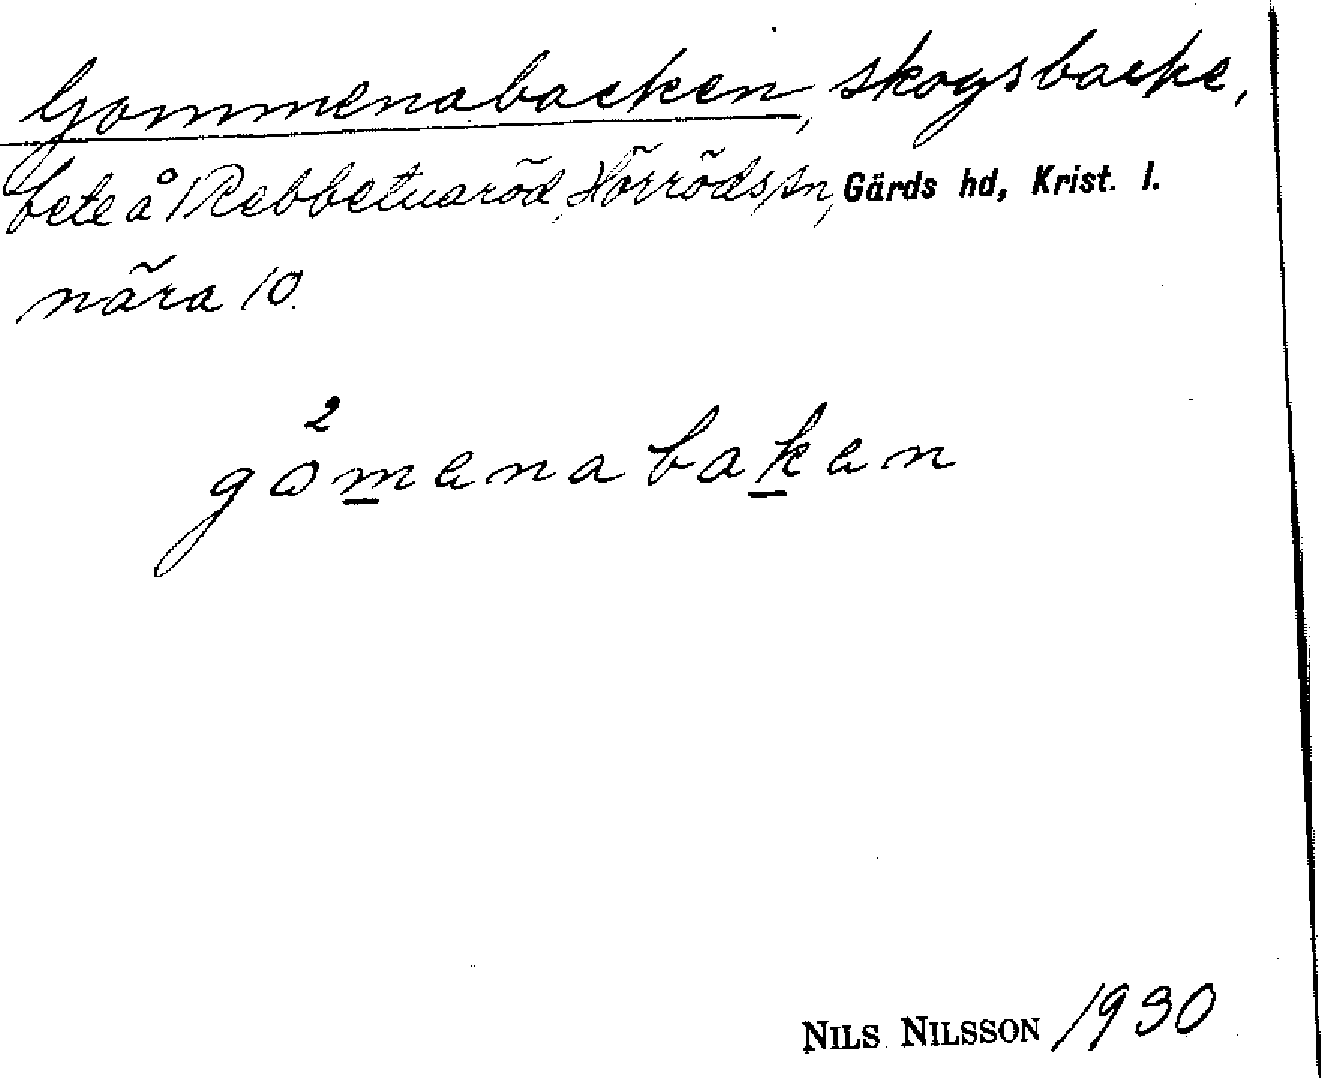 Gommenabacken, skogsbacke,
bete å Rebbetuaröd, Hörröds sn, Gärds hd, Krist. l.
nära 10.
2
gomenabaken
NILS NILSSON 1930